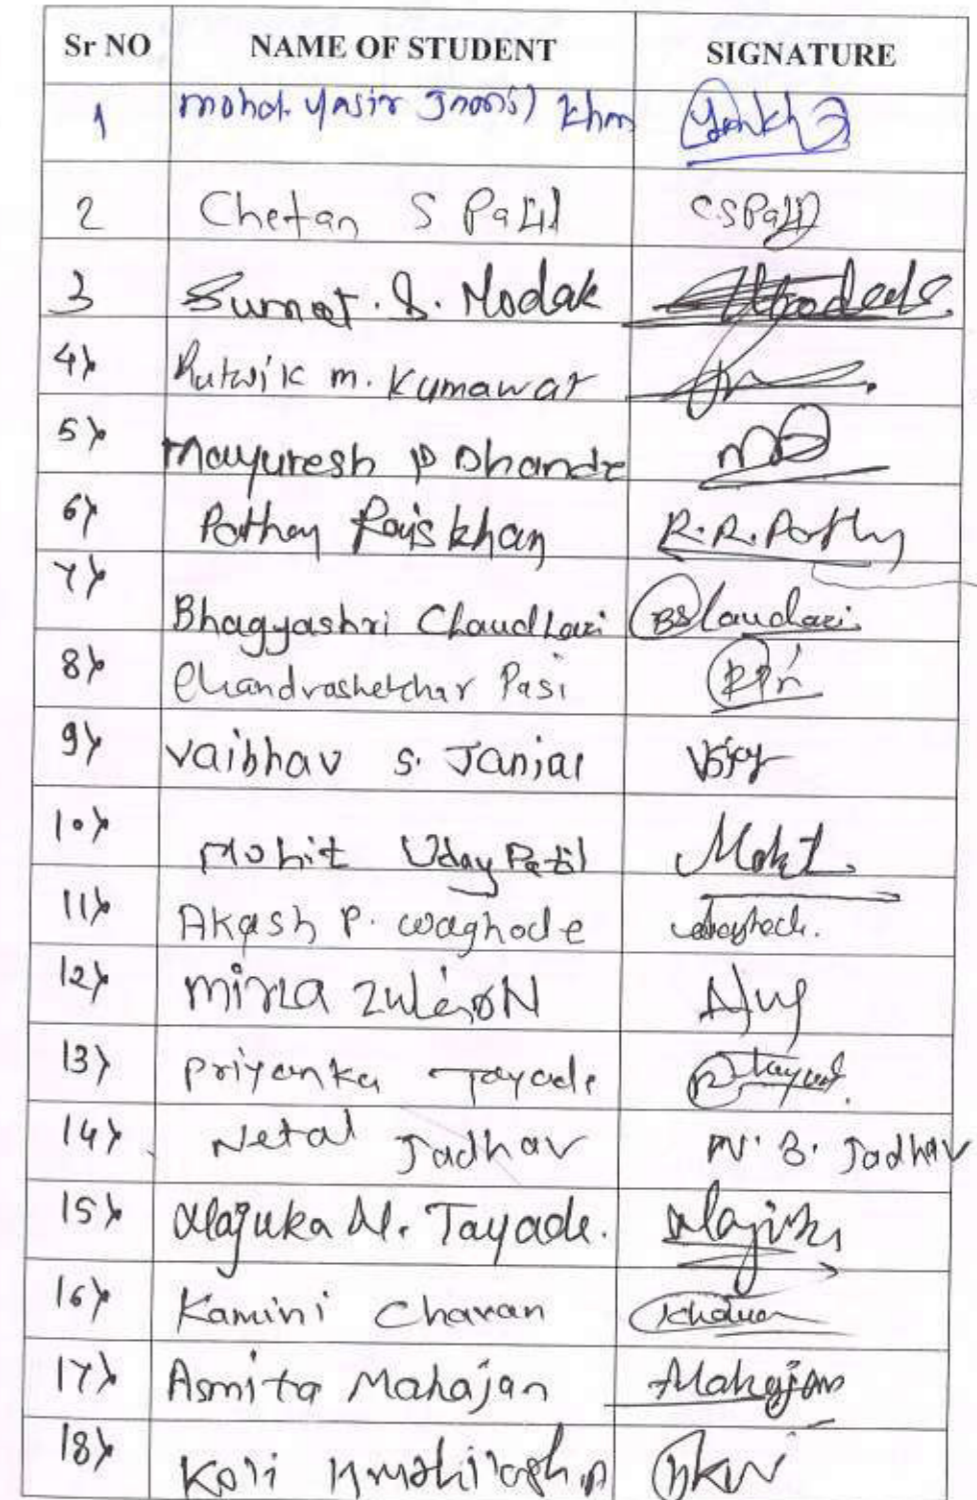 Sr NO NAME OF STUDENT SIGNATURE
1 mohd. yasir
2 Chetan S Patil CSPatil
3 Sumat. S. Modak
4) Rutwik m. Kumawat
5) Mayuresh P Dhande
6) Pathan Rais khan R.R.Pathan
7) Bhagyashri Chaudhari BSChaudhari
8) Chandrashekhar Pasi
9) Vaibhav S. Janjal
10) Mohit Uday Patil Mohit
11) Akash P. Waghode Waghode.
12) mirza
13) Priyanka Tayade Ptayade
14) Netal Jadhav N. B. Jadhav
15) Majuka M. Tayade.
16) Kamini Chavan KChavan
17) Asmita Mahajan AMahajan
18) Koli